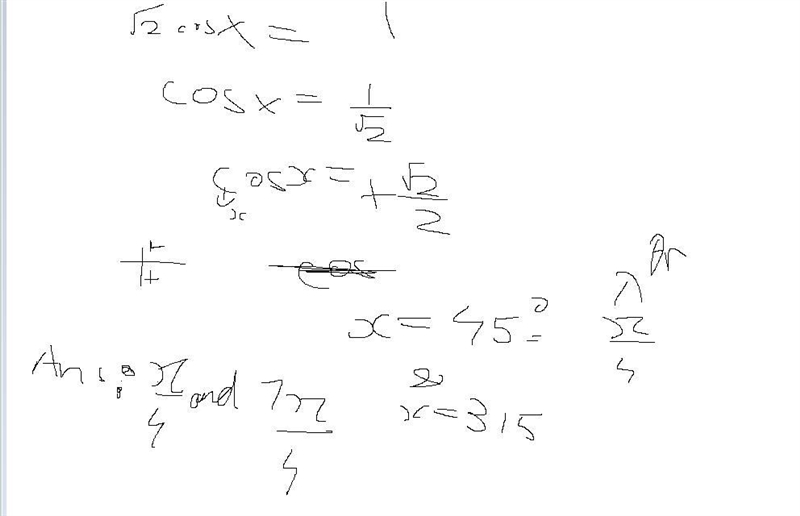 √2 cosx = 1
cosx = 1/√2
cosx = +√2/2
x
cos
x = 45° π/4
Ans: π/4 and 7π/4
x = 315